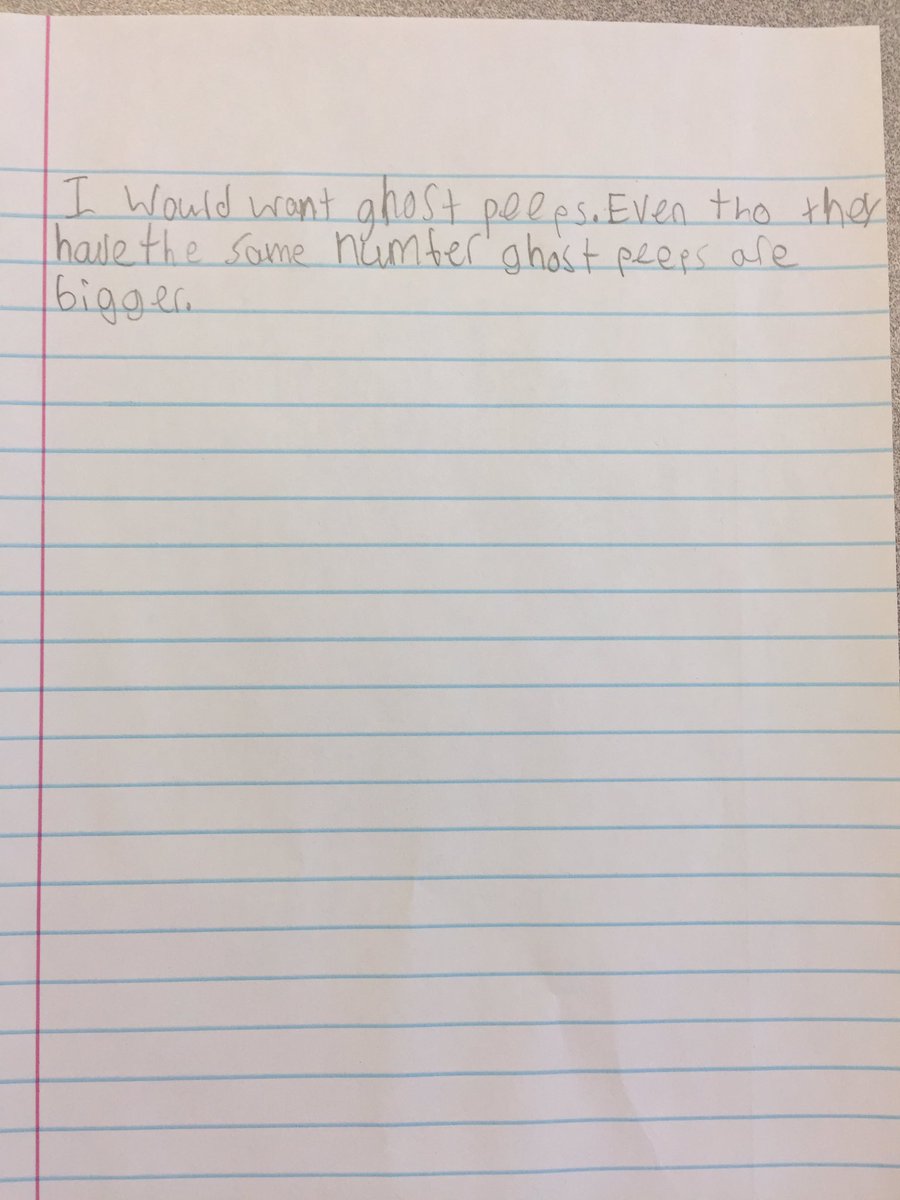 I would want ghost peeps. Even tho they
have the same number ghost peeps are
bigger.